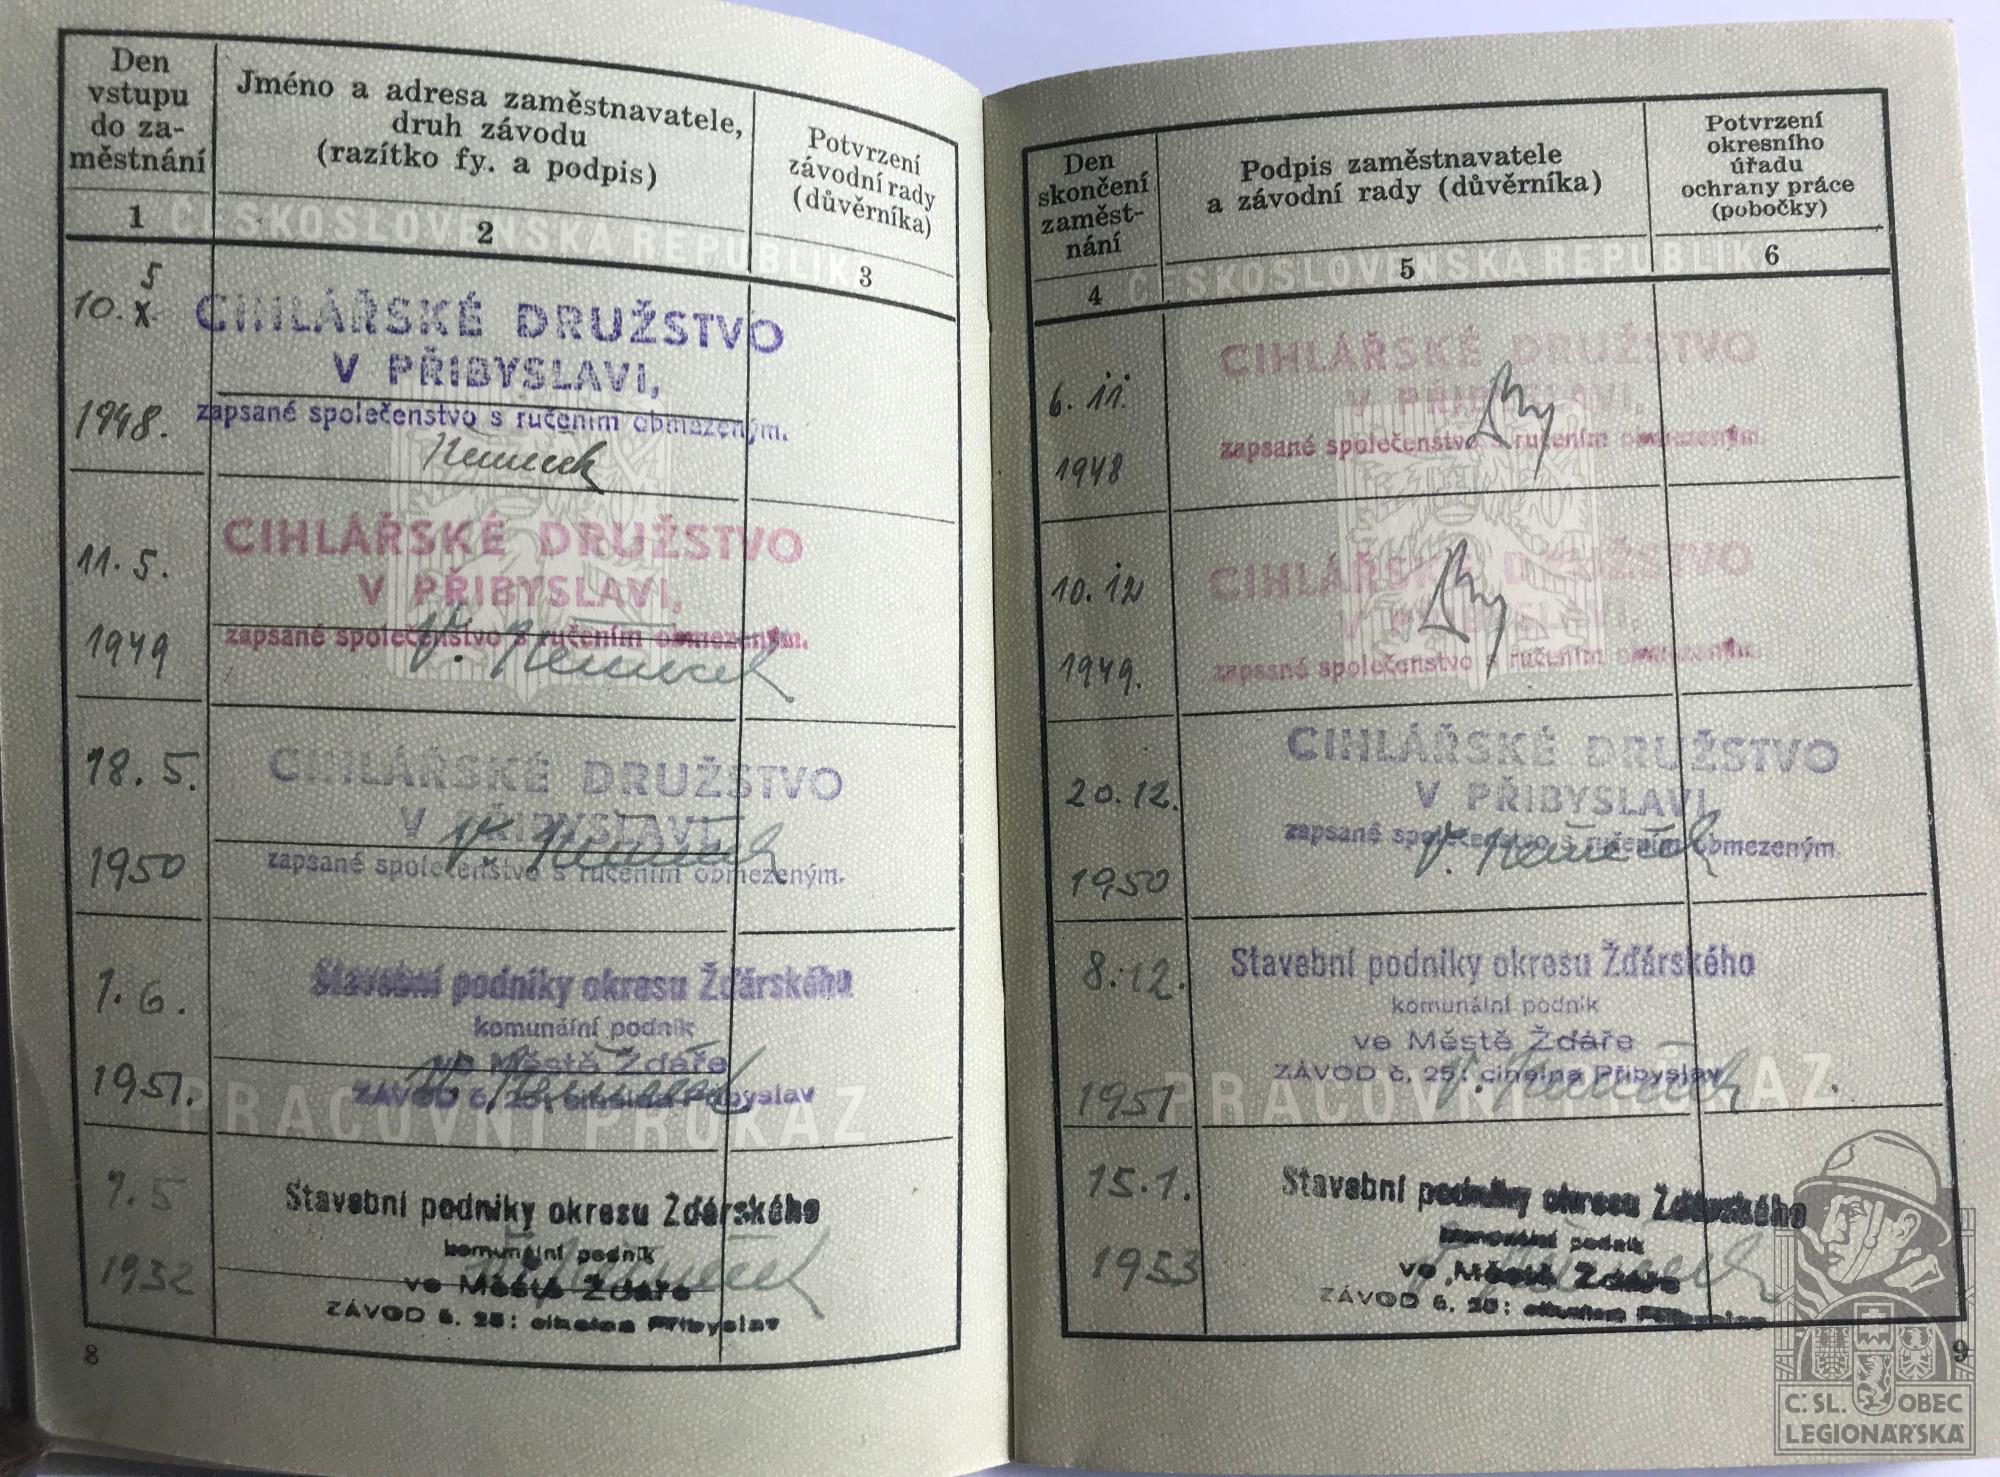 Den
vstupu
do za-
městnání
Jméno a adresa zaměstnavatele,
druh závodu
(razítko fy. a podpis)
Potvrzení
závodní rady
(důvěrníka)
1
2
3
ČESKOSLOVENSKÁ REPUBLIKA
5
10. X.
1948.
CIHLÁŘSKÉ DRUŽSTVO
V PŘIBYSLAVI,
zapsané společenstvo s ručením obmezeným.
Němeček
11. 5.
1949
CIHLÁŘSKÉ DRUŽSTVO
V PŘIBYSLAVI,
zapsané společenstvo s ručením obmezeným.
V. Němeček
18. 5.
1950
CIHLÁŘSKÉ DRUŽSTVO
V PŘIBYSLAVI,
zapsané společenstvo s ručením obmezeným.
V. Němeček
1. 6.
1951.
Stavební podniky okresu Žďárského
komunální podnik
ve Městě Žďáře
ZÁVOD č. 25: cihelna Přibyslav
V. Němeček
PRACOVNÍ PRŮKAZ
1. 5
1952
Stavební podniky okresu Žďárského
komunální podnik
ve Městě Žďáře
ZÁVOD č. 25: cihelna Přibyslav
8
Den
skončení
zaměst-
nání
Podpis zaměstnavatele
a závodní rady (důvěrníka)
Potvrzení
okresního
úřadu
ochrany práce
(pobočky)
4
5
6
ČESKOSLOVENSKÁ REPUBLIKA
6. 11.
1948
CIHLÁŘSKÉ DRUŽSTVO
V PŘIBYSLAVI,
zapsané společenstvo s ručením obmezeným.
10. 12
1949.
CIHLÁŘSKÉ DRUŽSTVO
V PŘIBYSLAVI,
zapsané společenstvo s ručením obmezeným.
20. 12.
1950
CIHLÁŘSKÉ DRUŽSTVO
V PŘIBYSLAVI,
zapsané společenstvo s ručením obmezeným.
V. Němeček
8. 12.
1951
Stavební podniky okresu Žďárského
komunální podnik
ve Městě Žďáře
ZÁVOD č. 25: cihelna Přibyslav
V. Němeček
PRACOVNÍ PRŮKAZ
15. 1.
1953
Stavební podniky okresu Žďárského
komunální podnik
ve Městě Žďáře
ZÁVOD č. 25: cihelna Přibyslav
9
Č. SL. OBEC
LEGIONÁŘSKÁ